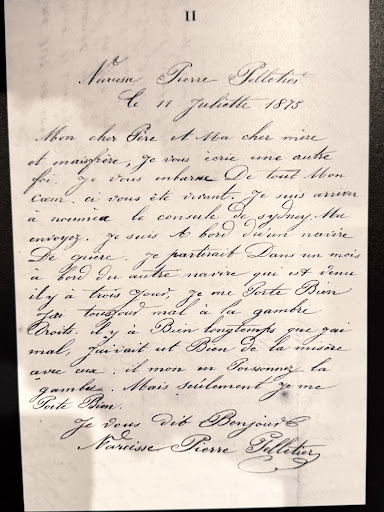 II
Narcisse Pierre Pelletier
le 11 Juliette 1875
Mon cher Père et Ma cher mère
et mais frère, Je vous écrie une autre
foi. Je vous enbarse De tout Mon
Cœur. ci vous ête vivant. Je suis arriver
à noumea le consule de sydney. Ma
envoyez. Je suis A bord d'un navire
De guere. Je partirait Dans un mois
à bord du autre navire qui est venu
il y a trois Jour, Je me Porte Bien
J'ai tousjour mal à la gambre
Droite. il y à Bien longtemps que j'ai
mal, J'aivait ut Bien de la misère
avec eux. il mon en Poisonnez la
gambe. Mais seulement Je me
Porte Bien.
Je vous dit Bonjour
Narcisse Pierre Pelletier